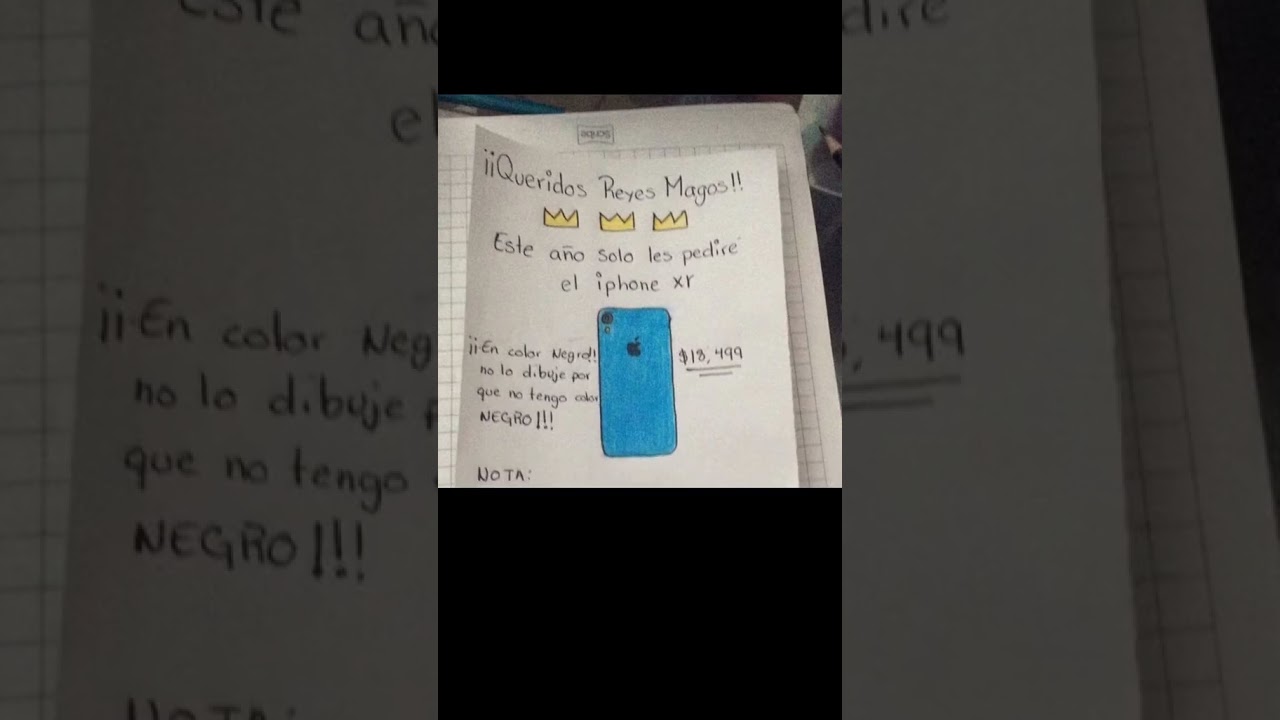 ¡¡Queridos Reyes Magos!!
Este año solo les pedire
el iphone xr
¡¡En color Negro!!
no lo dibuje por
que no tengo color
NEGRO!!!
$18,499
NOTA: